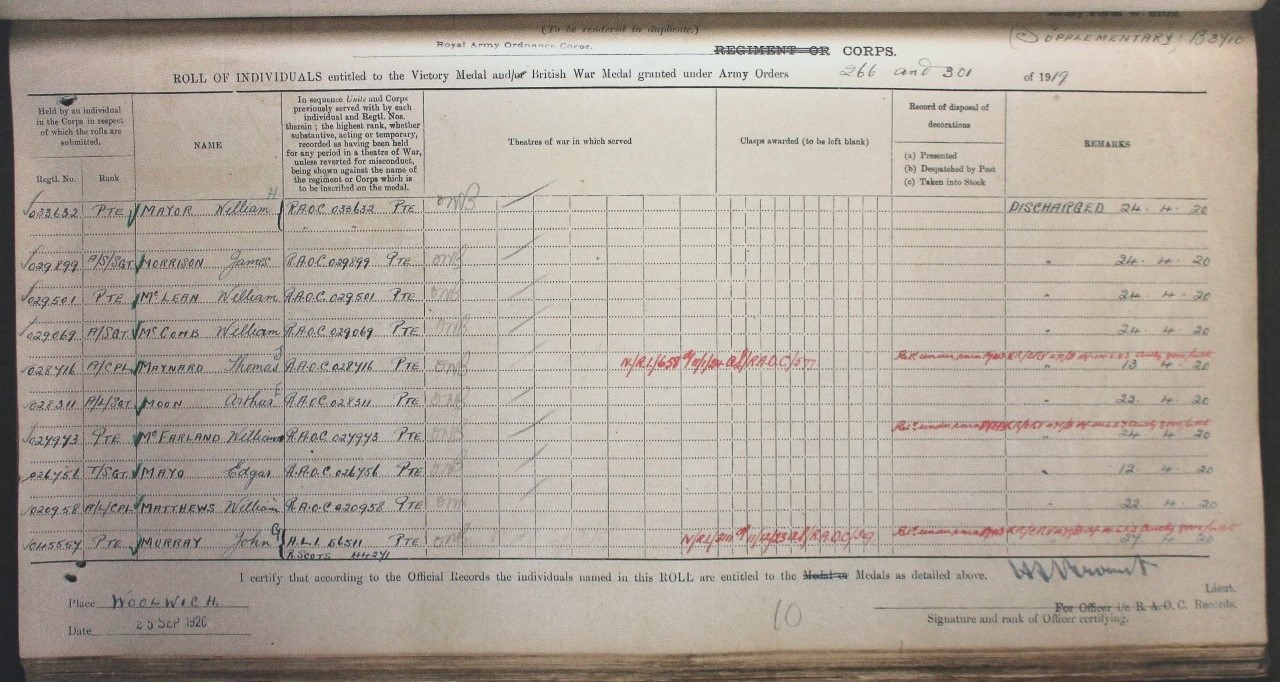 (To be rendered in duplicate.)
(SUPPLEMENTARY) B3910
Royal Army Ordnance Corps. REGIMENT OR CORPS.
ROLL OF INDIVIDUALS entitled to the Victory Medal and/or British War Medal granted under Army Orders 266 and 301 of 1919
Held by an individual in the Corps in respect of which the rolls are submitted.
Regtl. No. Rank
NAME
In sequence Units and Corps previously served with by each individual and Regtl. Nos. therein; the highest rank, whether substantive, acting or temporary, recorded as having been held for any period in a theatre of War, unless reverted for misconduct, being shown against the name of the regiment or Corps which is to be inscribed on the medal.
Theatres of war in which served
Clasps awarded (to be left blank)
Record of disposal of decorations
(a) Presented
(b) Despatched by Post
(c) Taken into Stock
REMARKS
033632 PTE MAYOR William H R.A.O.C. 033632 PTE DISCHARGED 24. 4. 20
029899 A/S/SGT MORRISON James R.A.O.C. 029899 PTE " 24. 4. 20
029501 PTE McLEAN William R.A.O.C. 029501 PTE " 24. 4. 20
029069 A/SGT McCOMB William R.A.O.C. 029069 PTE " 24. 4. 20
028716 A/CPL MAYNARD Thomas J R.A.O.C. 028716 PTE " 13. 4. 20
028311 A/L/SGT MOON Arthur E R.A.O.C. 028311 PTE " 22. 4. 20
027973 PTE McFARLAND William R.A.O.C. 027973 PTE " 24. 4. 20
026756 T/SGT MAYO Edgar R.A.O.C. 026756 PTE " 12. 4. 20
020958 A/L/CPL MATTHEWS William R.A.O.C. 020958 PTE " 22. 4. 20
045557 PTE MURRAY John G H.L.I. 56511 PTE 27. 4. 20
R.SCOTS 44271
I certify that according to the Official Records the individuals named in this ROLL are entitled to the Medal or Medals as detailed above.
Lieut.
Place WOOLWICH.
For Officer i/c R.A.O.C. Records.
Date 25 SEP 1920
10
Signature and rank of Officer certifying.